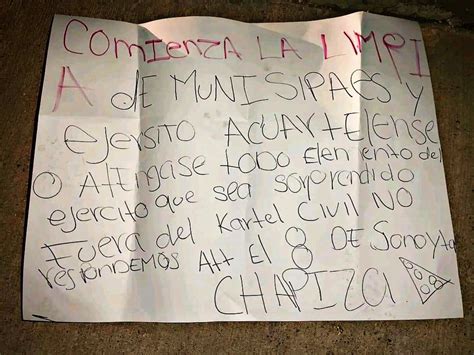 COMIENZA LA LIMPI
A dE MUNISIPAES y
EJERSITO ACUARTELENSE
O ATENgASE todo Elemento del
EJERCito que sea sorprendido
Fuera del Kartel Civil NO
RESPONDEMOS Att El 8 DE Sonoyta
CHAPIZA